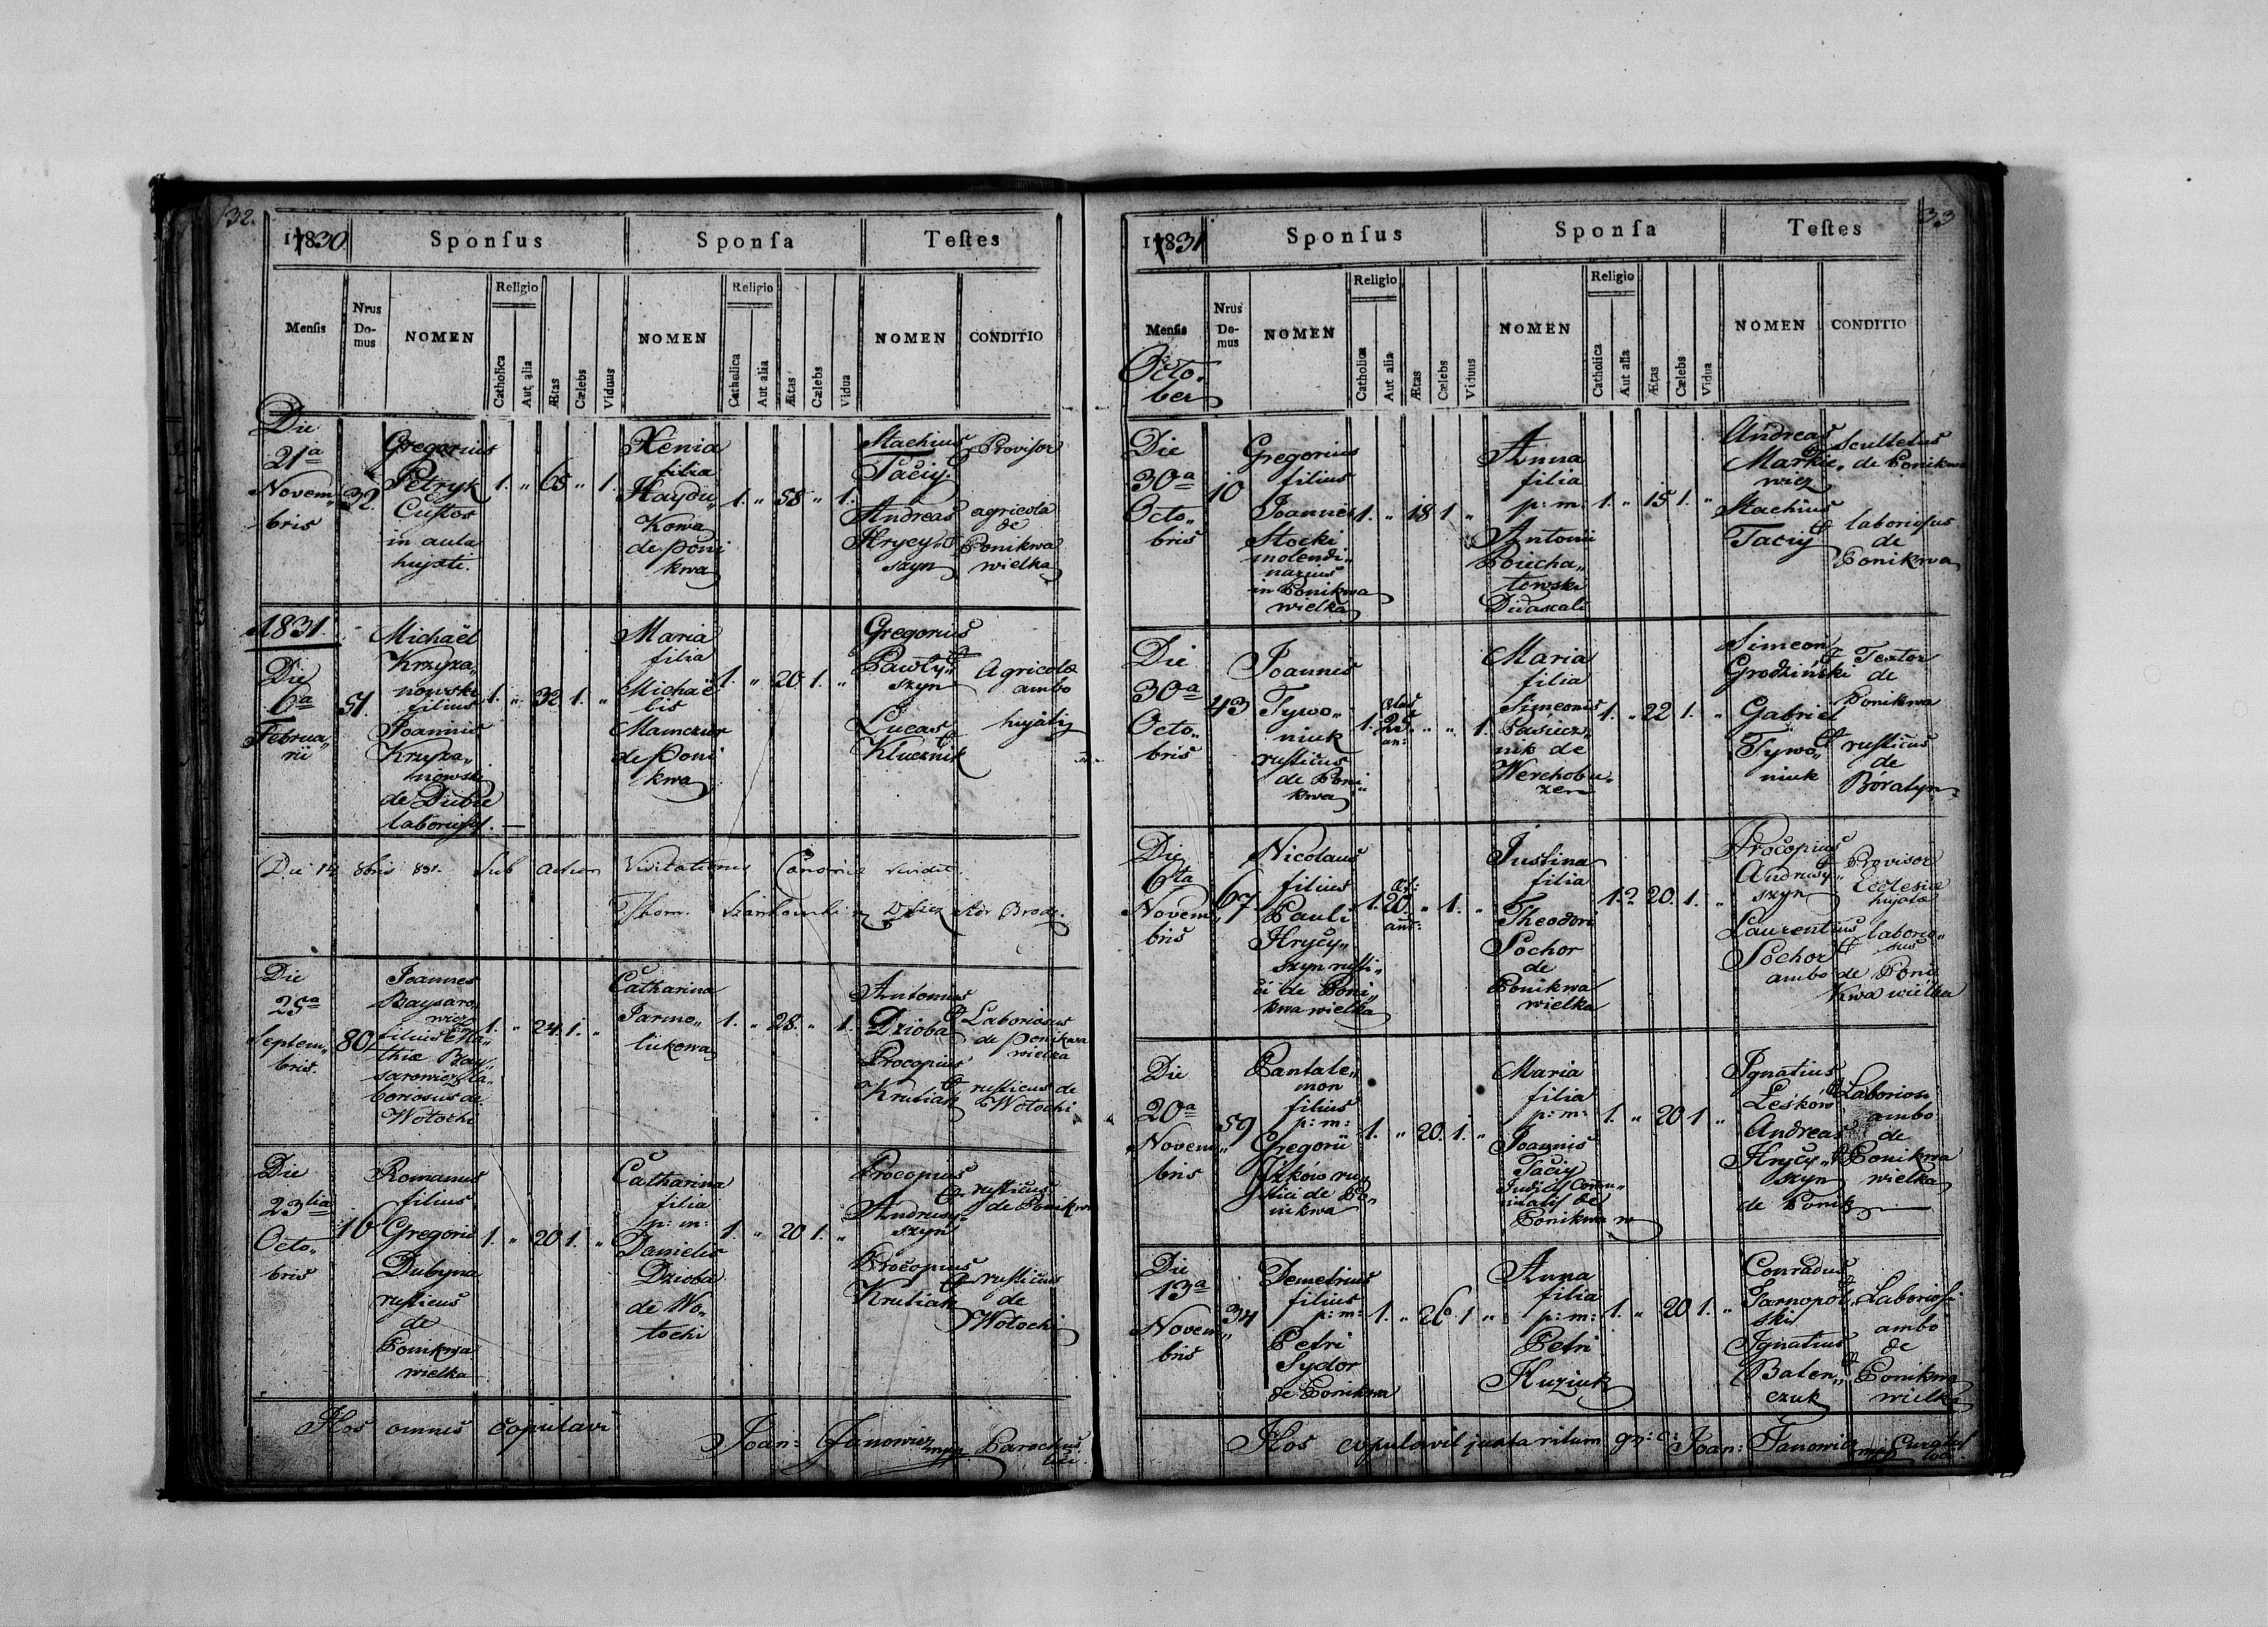 32.
1830 Sponſus Sponſa Teſtes
Religio Religio
Menſis Nrus Do- mus NOMEN Catholica Aut alia Ætas Cælebs Viduus NOMEN Catholica Aut alia Ætas Cælebs Vidua NOMEN CONDITIO
Die
21a
Novem„
bris
32.
Gregorius
Petryk
Custos
in aula
hujati.
1. „ 65 „ 1.
Xenia
filia
Haydu„
kowa
de Poni
kwa
1. „ 58 „ 1.
Stachius
Taciy
Andreas
Hrycy„
szyn
Provisor
agricola
de
Ponikwa
wielka
1831.
Die
6a
Februa„
rii
51.
Michaël
Krzyza„
nowski
filius
Joannis
Krzyza„
nowski
de Dubie
laboriosus.
1. „ 32 1. „
Maria
filia
Michaë
lis
Mamczur
de Poni
kwa
1. „ 20 1. „
Gregorius
Pawły„
szyn
Lucas
Klucznik
Agricolæ
ambo
hujatis
Die 14 8bris 831. Sub actum Visitationis Canonicæ vidit.
Thom.
Die
25a
Septem„
bris.
80
Joannes
Baysaro
wicz
filius Ma„
thiæ Bay„
sarowicz la„
boriosus de
Wołochi
1. „ 24 1. „
Catharina
Jarmo„
lukowa
1. „ 28. „ 1.
Antonius
Dzioba
Procopius
Krutiak
Laboriosus
de Ponikwa
wielka
rusticus de
Wołochi
Die
23tia
Octo„
bris
16
Romanus
filius
Gregorii
Dubyna
rusticus
de
Ponikwa
wielka
1. „ 20 1. „
Catharina
filia
p: m:
Danielis
Dzioba
de Wo„
łochi
1. „ 20 1. „
Procopius
Andrusy„
szyn
Procopius
Krutiak
rusticus
de Ponikwa
rusticus
de
Wołochi
Hos omnes copulavi Joan: Janowicz mpp Parochus
loci.
33
1831 Sponſus Sponſa Teſtes
Religio Religio
Menſis Nrus Do- mus NOMEN Catholica Aut alia Ætas Cælebs Viduus NOMEN Catholica Aut alia Ætas Cælebs Vidua NOMEN CONDITIO
Octo„
ber
Die
30a
Octo„
bris
10
Gregorius
filius
Joannes
Stocki
molendi„
narius
in Ponikwa
wielka
1. „ 18 1 „
Anna
filia
p: m:
Antonii
Poiecha„
towski
Didascali
1. „ 15 1. „
Andreas
Markie„
wicz
Stachius
Taciy
Scultetus
de Ponikwa
laboriosus
de
Ponikwa
Die
30a
Octo„
bris
43
Joannes
Tywo„
niuk
rusticus
de Poni„
kwa
1. ætas 25 an: „ „ 1.
Maria
filia
Simeonis
Pasiecz„
nik de
Werchobu„
zen
1. „ 22 1. „
Simeon
Grodziński
Gabriel
Tywo„
niuk
Textor
de
Ponikwa
rusticus
de
Boratyn
Die
6ta
Novem„
bris
67
Nicolaus
filius
Pauli
Hrycy„
szyn rusti„
ci de Poni„
kwa wielka
1. æt: 20. ann: „ 1. „
Justina
filia
Theodori
Sochor
de
Ponikwa
wielka
1. „ 20. 1. „
Procopius
Andrusy„
szyn
Laurentius
Sochor
ambo de Poni
kwa wielka
Provisor
Ecclesiæ
hujatæ
laborio„
sus
Die
20a
Novem„
bris
59
Pantale„
mon
filius
p: m:
Gregorii
Jzków ru„
stici de Po„
nikwa
1. „ 20. 1. „
Maria
filia
p: m:
Joannis
Taciy
Judicis Comu„
nitatis de
Ponikwa w
1. „ 20 1 „
Ignatius
Leśków
Andreas
Hrycy„
szyn
de Ponik
Laboriosi
ambo
de
Ponikwa
wielka
Die
13a
Novem„
bris
34
Demetrius
filius
p: m:
Petri
Sydor
de Ponikwa
1. „ 26. 1 „
Anna
filia
p: m:
Petri
Kuziuk
1. „ 20 1. „
Conradus
Tarnopol„
ski
Ignatius
Balen„
czuk
Laboriosi
ambo
de
Ponikwa
wielka
Hos copulavit juxta ritum gr: c: Joan: Janowicz mpp Curatus
loci.